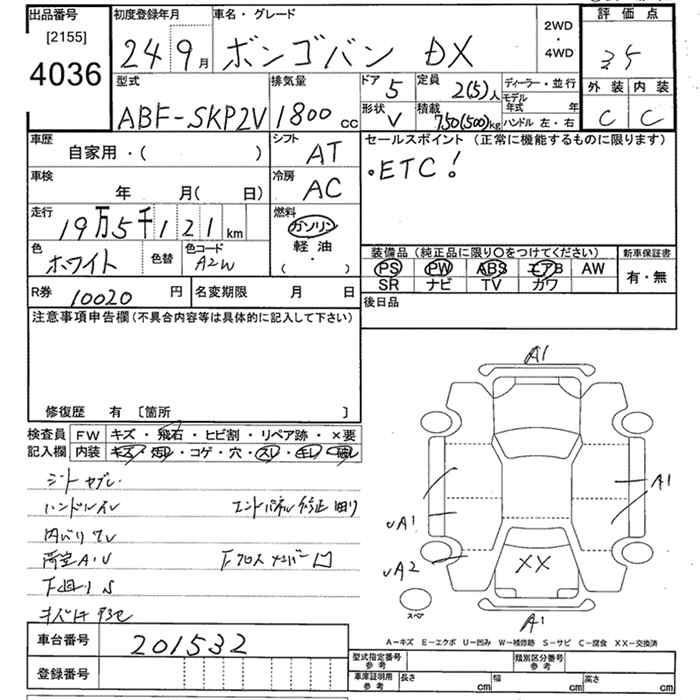 出品番号 初度登録年月 車名・グレード 2WD・4WD 評価点
[2155]
4036 24 9月 ボンゴバン DX 35
型式 排気量 ドア 5 定員 2(5)人 ディーラー・並行 外装 内装
ABF-SKP2V 1800cc 形状 V 積載 750(500)kg モデル年式 年 ハンドル 左・右 C C
車歴 自家用・( ) シフト AT セールスポイント (正常に機能するものに限ります)
車検 年 月( 日) 冷房 AC ・ETC!
走行 19万5千121km 燃料 ガソリン 軽油 ( ・ )
色 ホワイト 色替 色コード A2W
装備品 (純正品に限り○をつけてください) 新車保証書
PS PW ABS エアB AW 有・無
SR ナビ TV カワ
R券 10020円 名変期限 月 日 後日品
注意事項申告欄 (不具合内容等は具体的に記入して下さい)
修復歴 有 [箇所 ]
検査員記入欄 FW キズ・飛石・ヒビ割・リペア跡・×要
内装 キズ・汚レ・コゲ・穴・スレ・キレ・破レ
A1
A1
A1
A2
XX
A1
スペア
下回りS
A-キズ E-エクボ U-凹み W-補修跡 S-サビ C-腐食 XX-交換済
車台番号 201532
登録番号
型式指定番号 参考 類別区分番号 参考
車庫証明用 参考 長さ cm 幅 cm 高さ cm